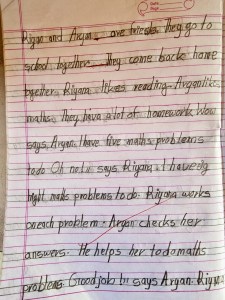 Riyana and Aryan are friends. They go to
school together. They come back home
together. Riyana likes reading. Aryan likes
maths. They have a lot of homework. Wow
says Aryan. I have five maths problems
to do. Oh no! says Riyana. I have
maths problems to do. Riyana works
on each problem. Aryan checks her
answers. He helps her to do maths
problems. Good job says Aryan. Riyana